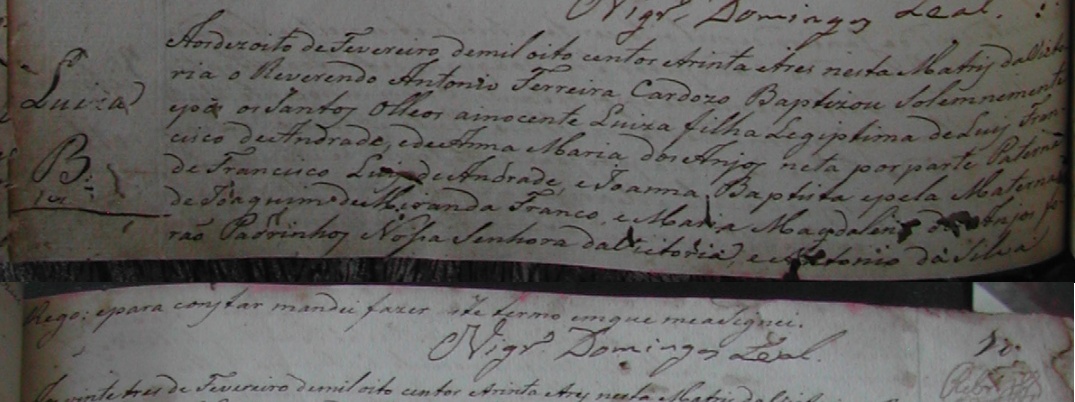 Vigrº Domingos Leal.
Aosdezoito de Fevereiro demil oito centos etrinta etres nesta Matris daVicto-
Luiza
ria o Reverendo Antonio Ferreira Cardozo Baptizou Solemnemente
epôs os Santos Olleos ainocente Luiza filha Legiptima de Luis Fran-
B.
cisco de Andrade, ede Anna Maria dos Anjos neta por parte Paterna
de Francisco Luis de Andrade, e Joanna Baptista epela Materna
de Joaquim de Miranda Franco, e Maria Magdalena dos Anjos fo-
rão Padrinhos Nossa Senhora daVictoria e Antonio da Silva
Rego; epara constar mandei fazer este termo emque meaSignei.
Vigrº Domingos Leal.
vinte tres de Fevereiro demil oito centos etrinta etres nesta Matris